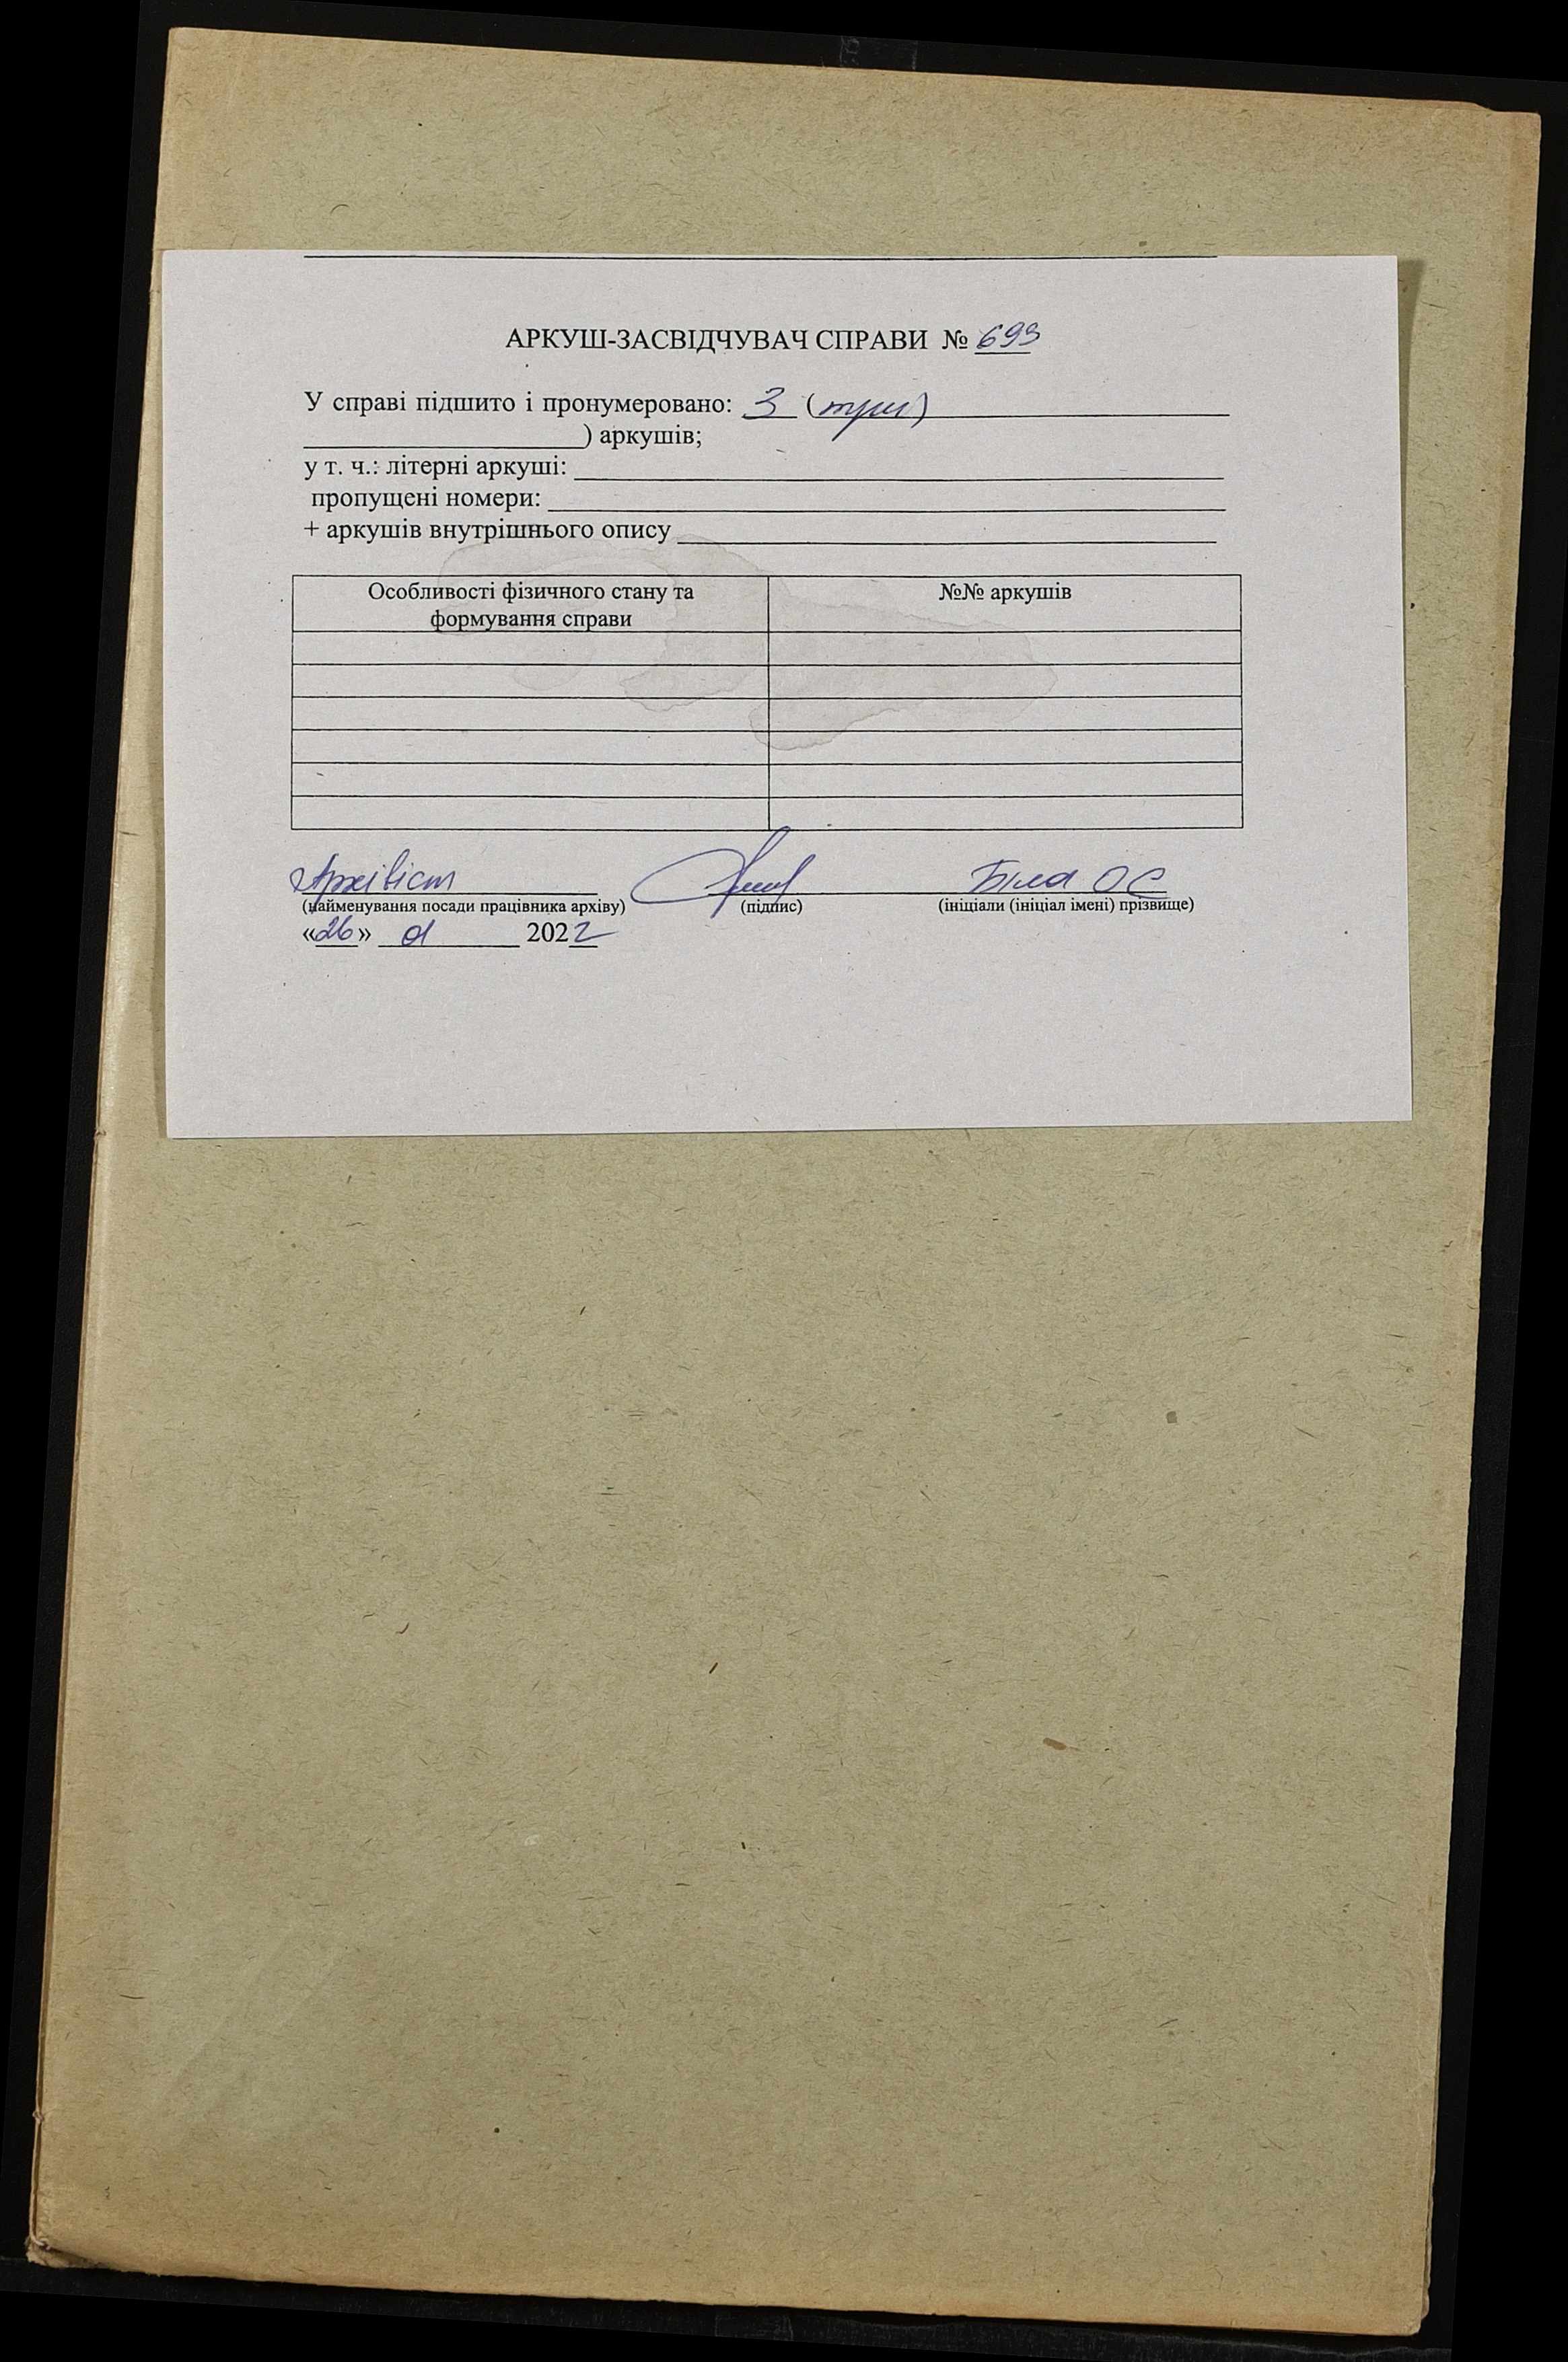 АРКУШ-ЗАСВІДЧУВАЧ СПРАВИ № 699
У справі підшито і пронумеровано: 3 (три)
) аркушів;
у т. ч.: літерні аркуші:
пропущені номери:
+ аркушів внутрішнього опису
Особливості фізичного стану та формування справи
№№ аркушів
Архівіст Біла О С
(найменування посади працівника архіву) (підпис) (ініціали (ініціал імені) прізвище)
«26» 2022